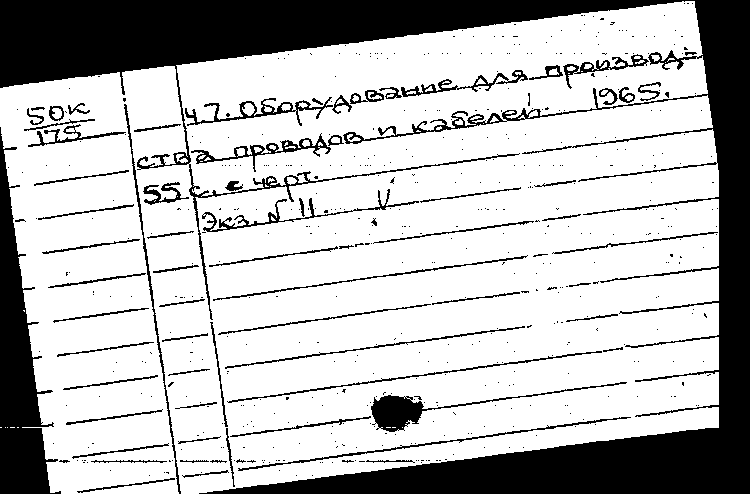 50к
175
ч.7. Оборудование для производ=
ства проводов и кабелей. 1965.
55 с. с черт.
Экз. № 11. V